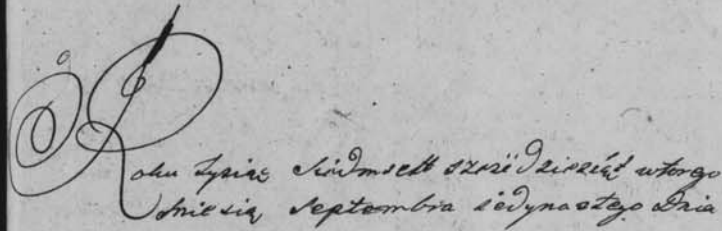 Roku tysiąc siedmsett szesidziesiąt wtorego
Miesiąca Septembra iedynastego Dnia